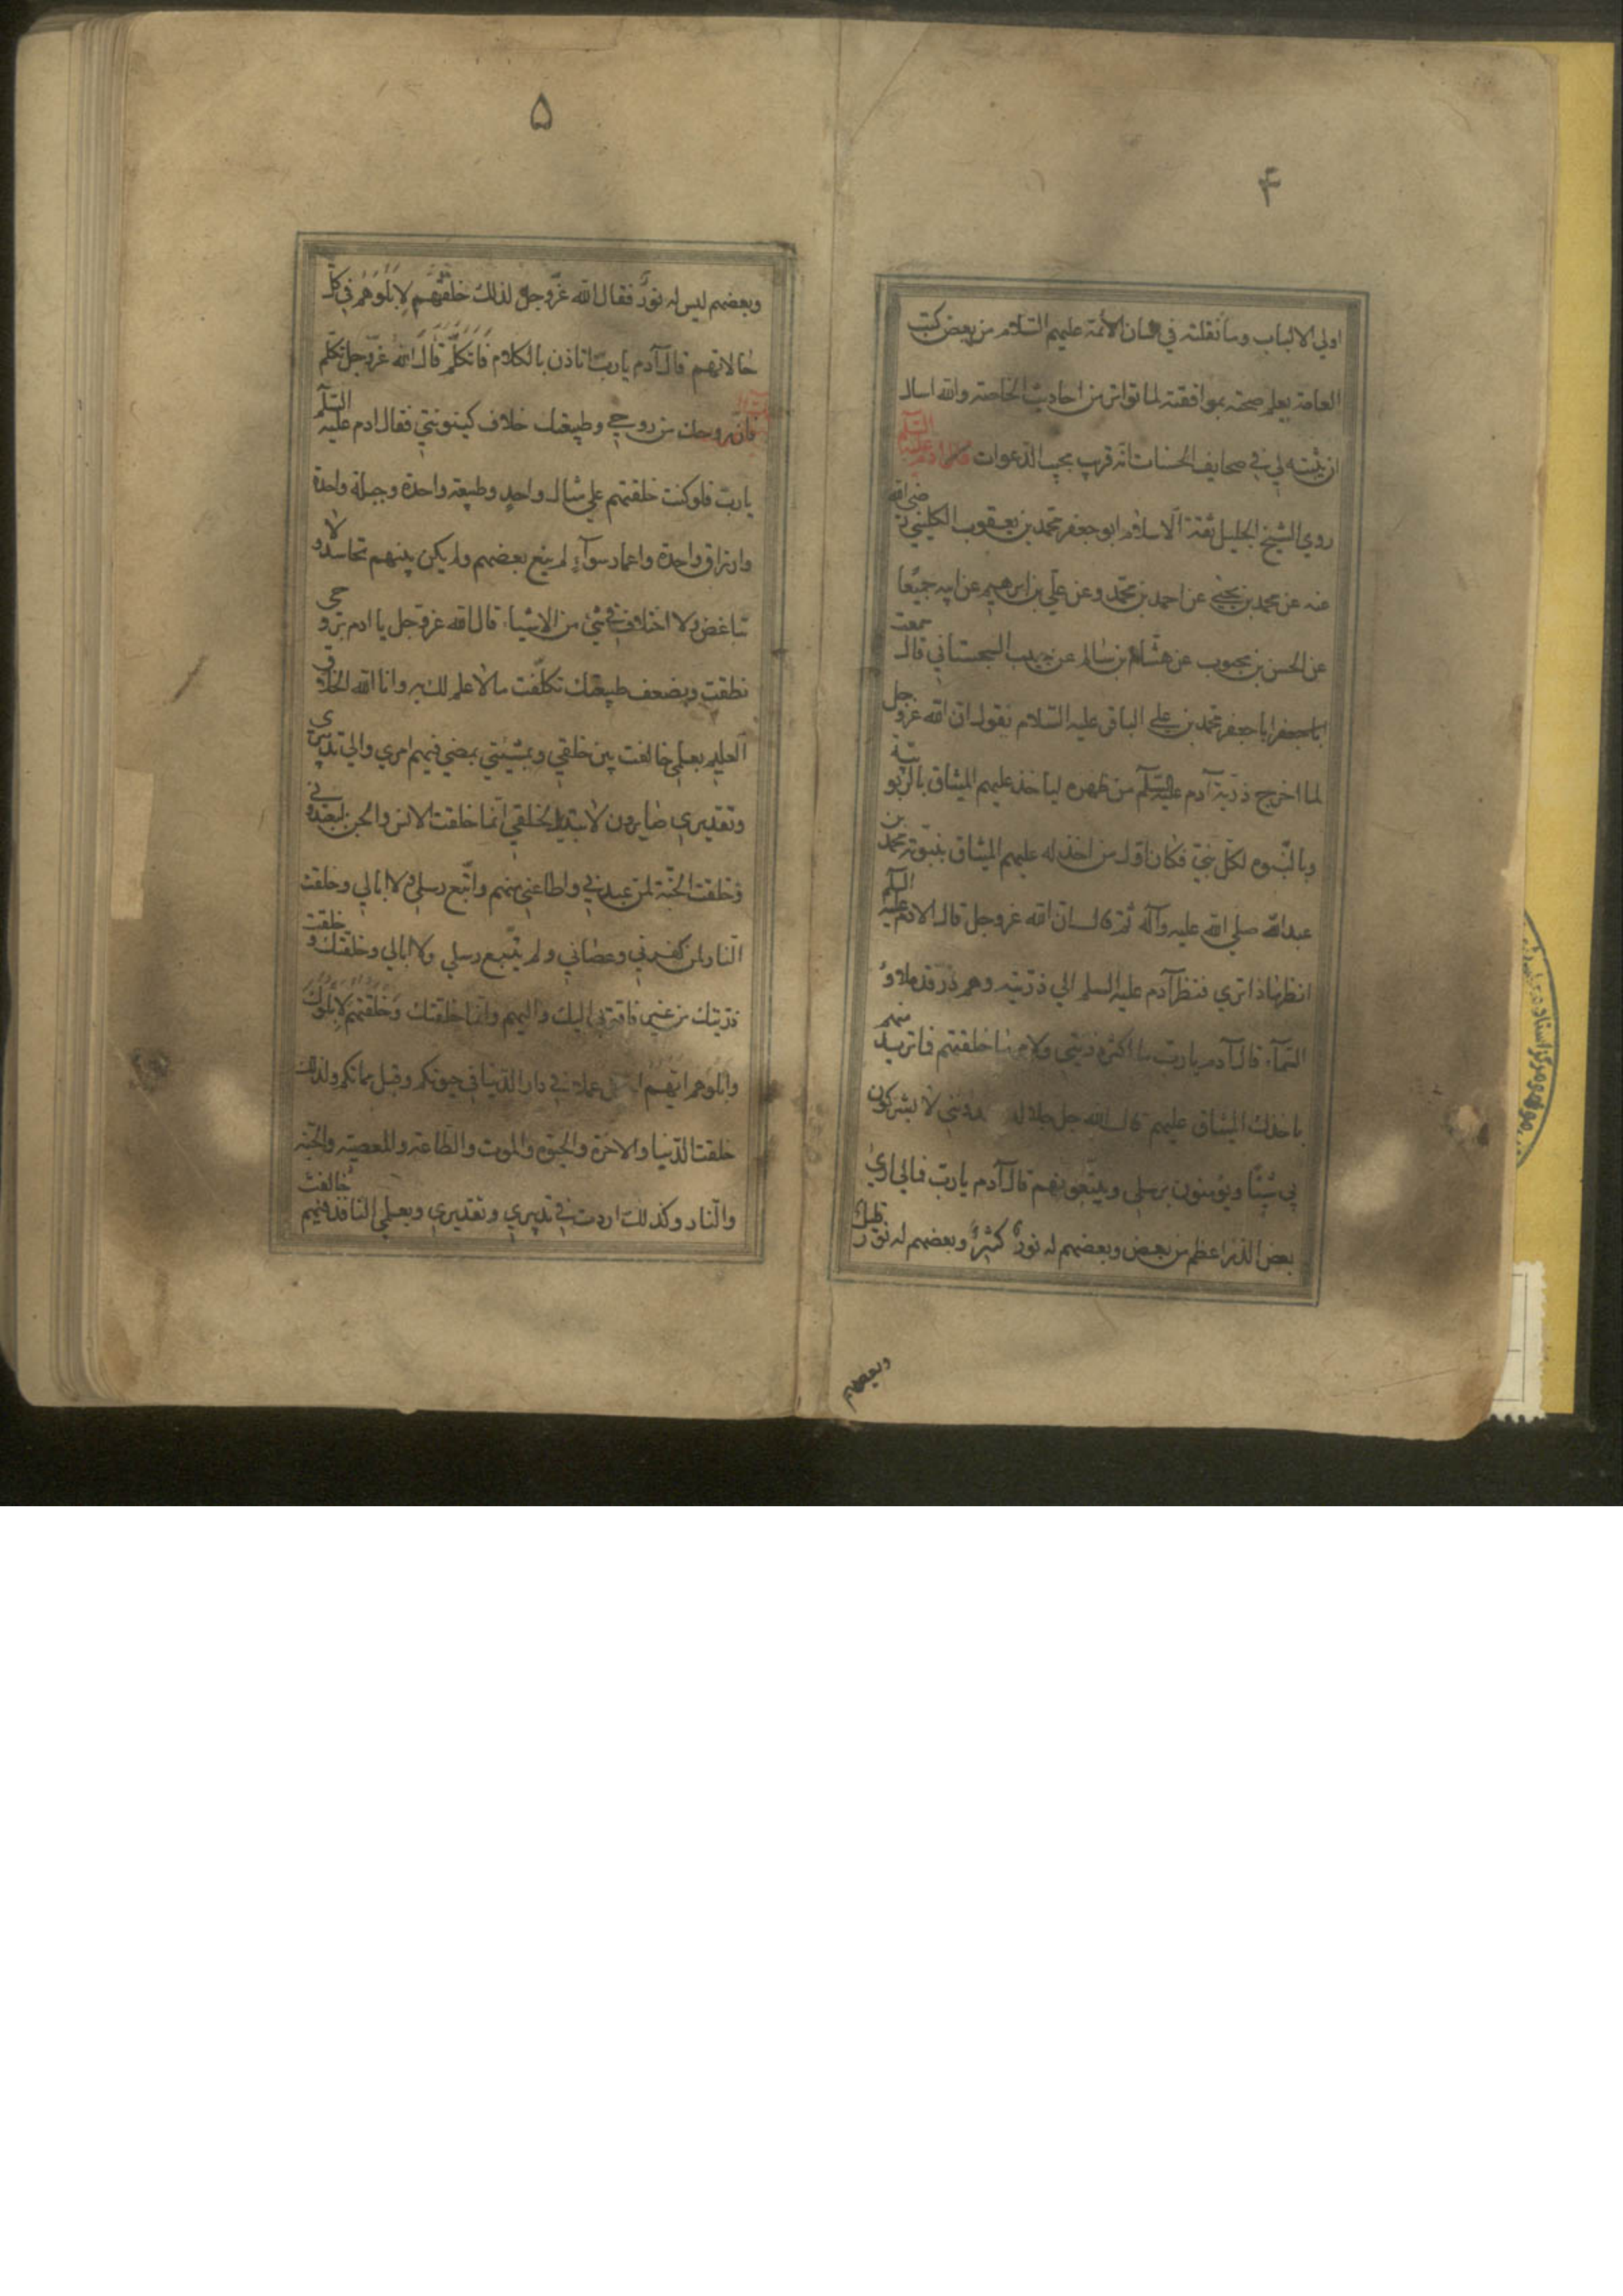 ۴
اولي الالباب وما نقلته في لسان الأئمة عليهم السّلام من بعض كتب
العامة يعلم صحته بموافقته لما تواتر من احاديث الخاصة والله اسال
ان يثبته لي في صحايف الحسنات انه قريب مجيب الدعوات ذكر ادم عليه السّلم
روي الشيخ الجليل ثقة الاسلام ابو جعفر محمد بن يعقوب الكليني رضي الله
عنه عن محمد بن يحيي عن احمد بن محمّد وعن علي بن ابرهيم عن ابيه جميعًا
عن الحسن بن محبوب عن هشام بن سالم عن حبيب السجستاني قال سمعت
اباجعفر محمد بن علي الباقر عليه السّلام يقول ان الله عزوجل
لما اخرج ذرّية آدم عليه السّلم من ظهره لياخذ عليهم الميثاق بالربوبية
وبالنّبوه لكلّ نبيّ فكان اوّل من اخذ له عليهم الميثاق بنبوّته محمّد بن
عبدالله صلي الله عليه وآله ثم قال ان الله عزوجل قال لادم عليه السلم
انظر ماذا تري فنظر آدم عليه السلم الي ذرّيته وهم ذر قد ملاوُ
السّمآء قال آدم يا ربّ ما اكثر ذريتي ولامر ما خلقتهم فما تريد منهم
باخذك الميثاق عليهم قال الله جل جلاله يعبدونني لا يشركون
بي شيئًا ويؤمنون برسلي ويتّبعونهم قال آدم يا ربّ فمالي اري
بعض الذّر اعظم من بعض وبعضهم له نورٌ كثيرٌ وبعضهم له نور قليل
وبعضهم
۵
وبعضهم ليس له نورٌ فقال الله عزّوجلّ لذلك خلقتُهم لِاَبلُوَهُم في كلّ
حالاتهم قال آدم يا ربّ اتاذن بالكلام فَاَتَكَلَّمَ قَالَ اللهُ عَزّوجلّ تكلّم
فانّ روحك من روحي وطبيعتك خلاف كينونتي فقال ادم عليه السّلم
يا ربّ فلو كنت خلقتهم علي مثال واحدٍ وطبيعة واحدة وجبلة واحدة
وارزاق واحدة واعمار سوآء لم يبغ بعضهم ولم يكن بينهم تحاسد ولا
تباغض ولا اختلاف في شئ من الاشياء قال الله عزوجل يا ادم بروحي
نطقت وبضعف طبيعتك تكلّفت مالا علم لك به وانا الله الخلاق
العليم بعلمي خالفت بين خلقي وبمشيّتي يمضي فيهم امري والي تدبيري
وتقديري صايرون لا تبديل لخلقي انّما خلقت الانس والجن ليعبدوني
وخلقت الجنّة لمن عبدني واطاعني منهم واتّبع رسلي ولا ابالي وخلقت
النّار لمن كفر بي وعصاني ولم يتّبع رسلي ولا ابالي وخلقتك وخلقت
ذريتك من غير فاقة بي اليك واليهم وانّما خلقتك وَخَلَقتُهم لِاَبلُوَكَ
وابلوهم ايّهم عملا في دار الدّنيا في حيوتكم وقبل مماتكم ولذلك
خلقت الدّنيا والاخرة والحيوة والموت والطّاعة والمعصية والجنّة
والنّار وكذلك اردت في تدبيري وتقديري وبعلمي النّافذ فيهم خالفت